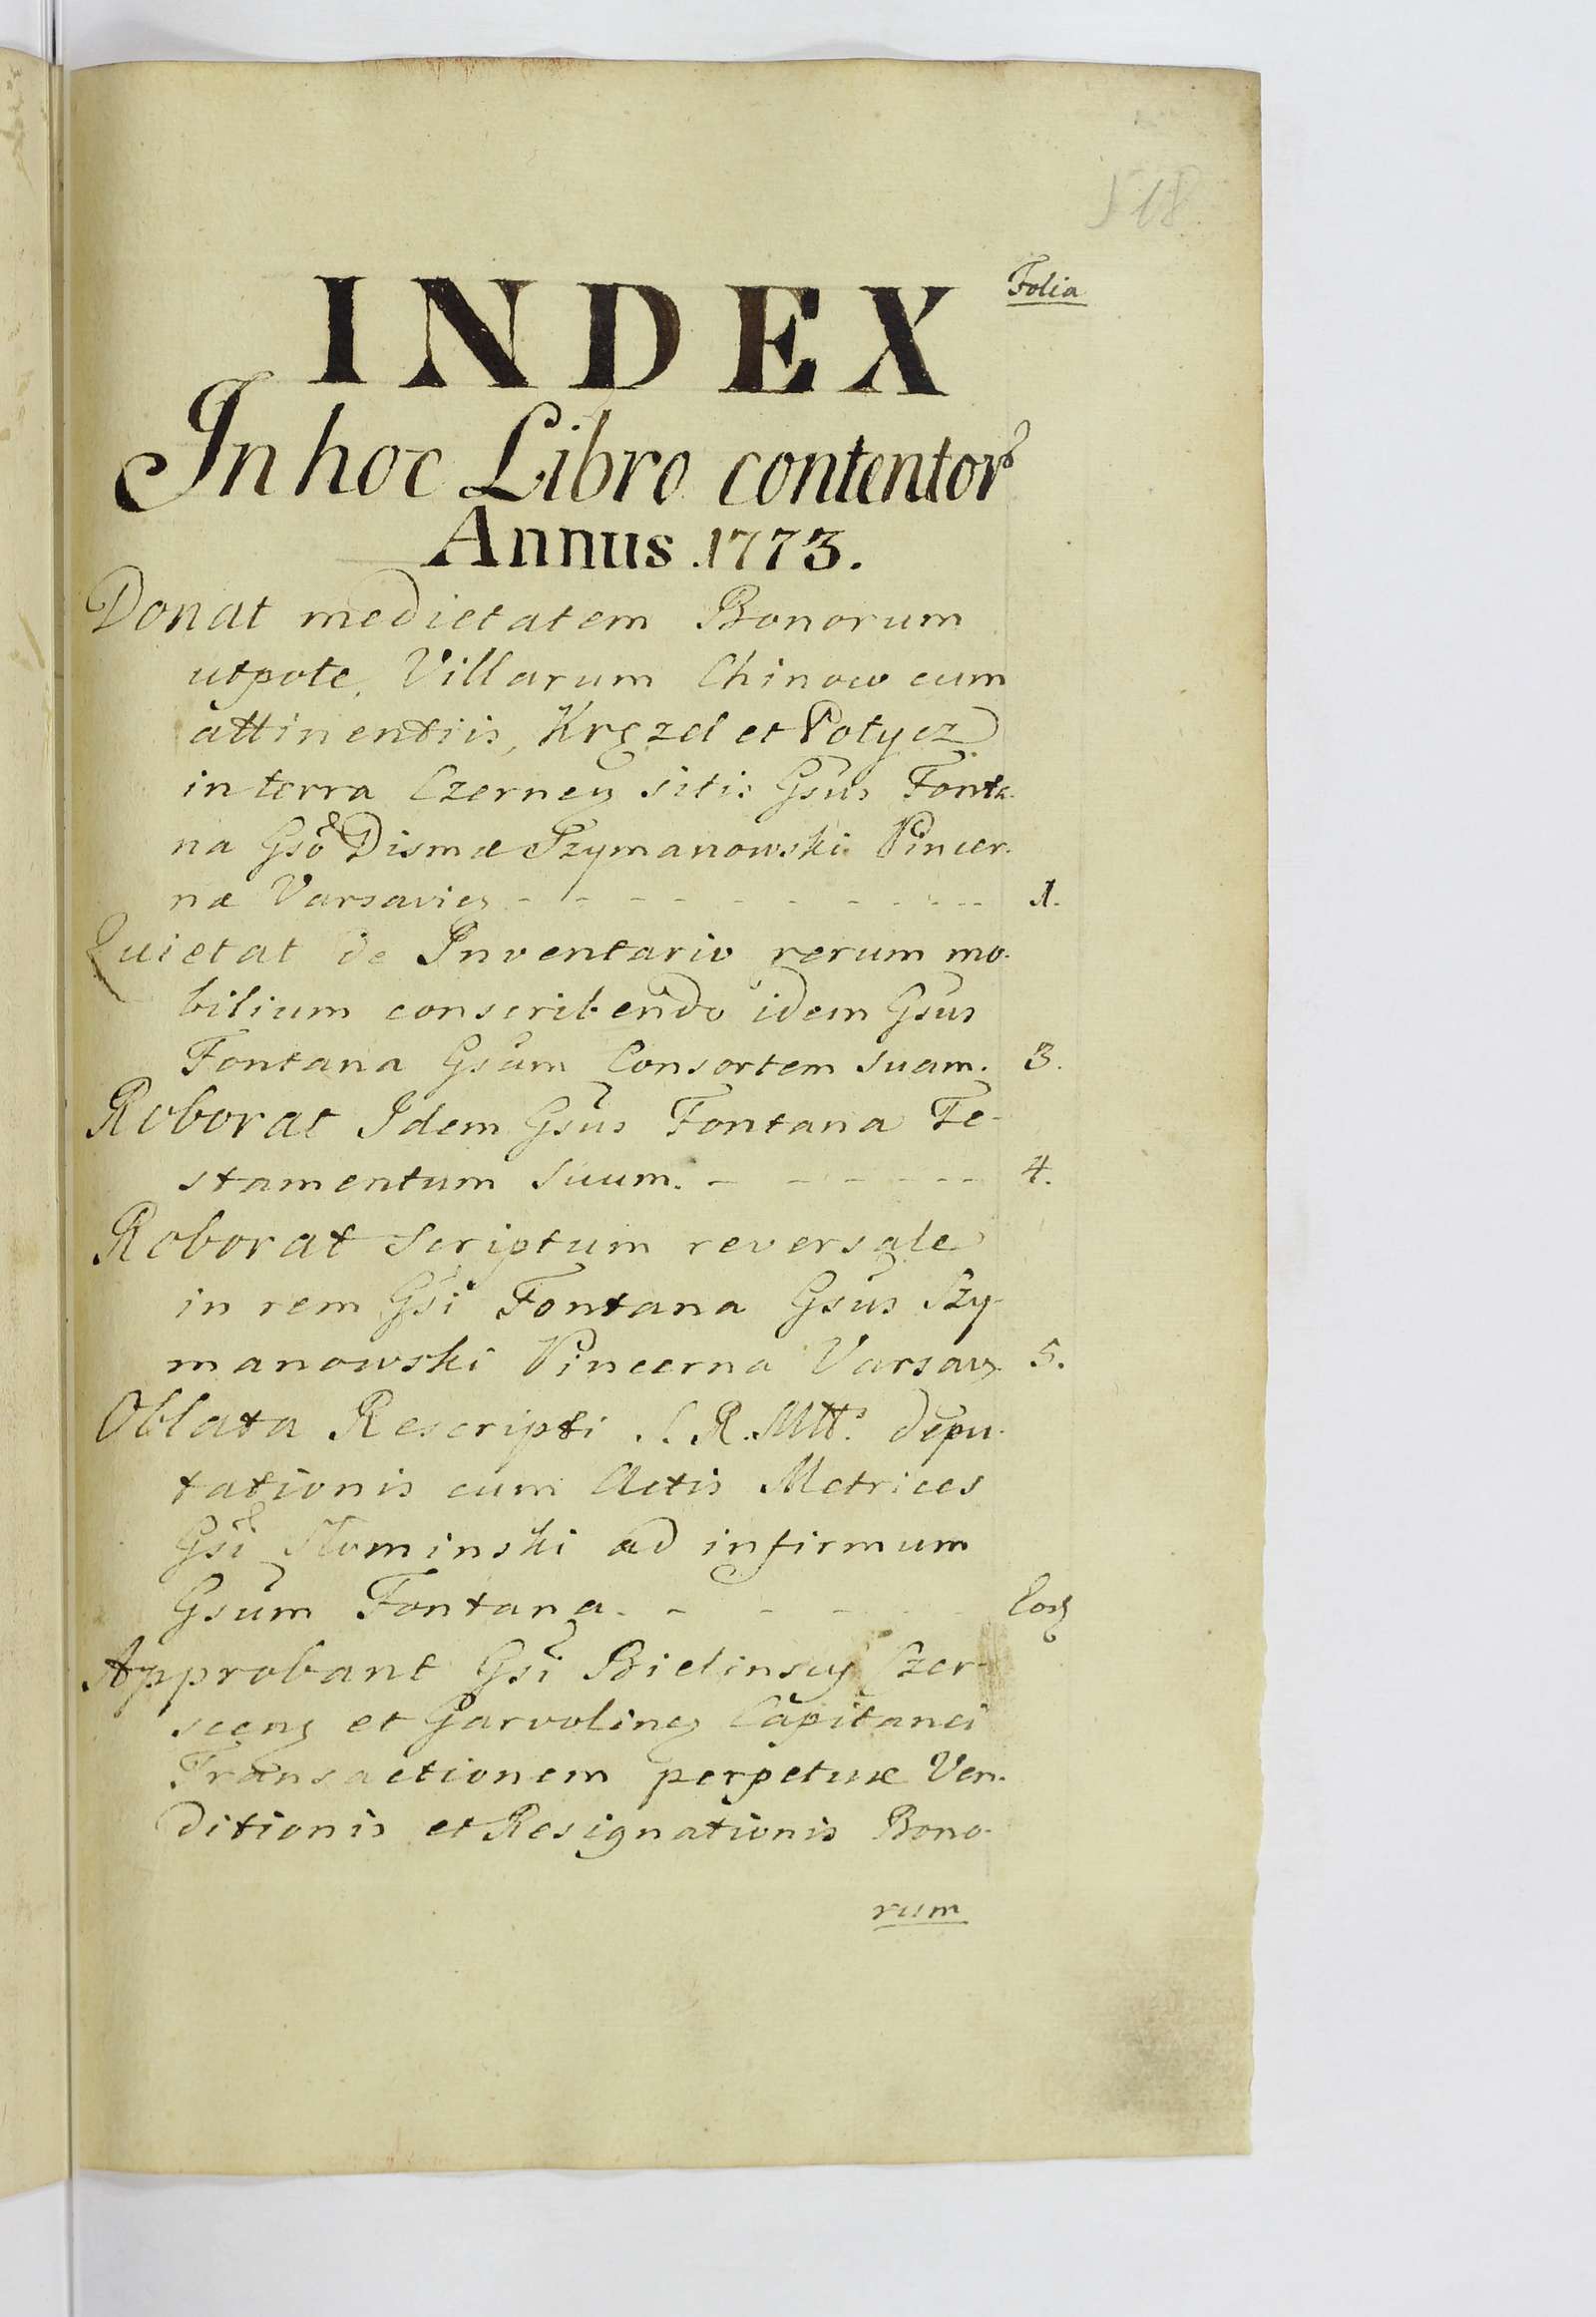 518
Folia
INDEX
In hoc Libro contentor
Annus .1773.
Donat medietatem Bonorum
utpote, Villarum Chinow cum
attinentiis, Kręzel et Potycz
in terra Czernen sitis Gsus Fonta-
na Gso Dismæ Szymanowski Pincer-
næ Varsavien - - - - - - - - - 1.
Quietat de Inventario rerum mo-
bilium conscribendo idem Gsus
Fontana Gsam Consortem suam. 3.
Roborat Idem Gsus Fontana Te-
stamentum suum. - - - - - - 4.
Roborat Scriptum reversale
in rem Gsi Fontana Gsus Szy-
manowski Pincerna Varsav 5.
Oblata Rescripti S. R. Mttis depu-
tationis cum Actis Metrices
Gsi Słominski ad infirmum
Gsum Fontana. - - - - - Eod
Approbant Gsi Bielinscy Czer-
scen et Garvolinen Capitanei
Transactionem perpetuæ Ven-
ditionis et Resignationis Bono-
rum